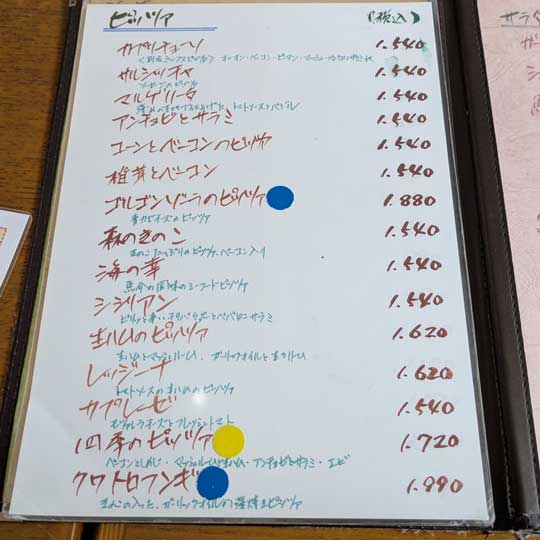 ピッツァ (税込)
カプリチョーソ 1.540
オニオン・ベーコン・ピーマン・マッシュルーム
サルシッチャ 1.540
ソーセージのピッツァ
マルゲリータ 1.540
トマトソースとバジル
アンチョビとサラミ 1.540
コーンとベーコンのピッツァ 1.540
椎茸とベーコン 1.540
ゴルゴンゾーラのピッツァ 1.880
青カビチーズのピッツァ
森のきのこ 1.540
きのこたっぷりのピッツァ、ベーコン入り
海の幸 1.540
魚介の風味のシーフードピッツァ
シシリアン 1.540
ピリッと辛いチリパウダーとペパロニサラミ
生ハムのピッツァ 1.620
生ハムとマッシュルーム、ガーリックオイルと
レッジーナ 1.620
トマトソースの生ハムのピッツァ
カプレーゼ 1.540
モツァレラチーズとフレッシュトマト
四季のピッツァ 1.720
ベーコンとしめじ・マッシュルームと生ハム・アンチョビとサラミ・エビ
クワトロフンギ 1.990
きのこの入った、ガーリックオイルの
サラダ